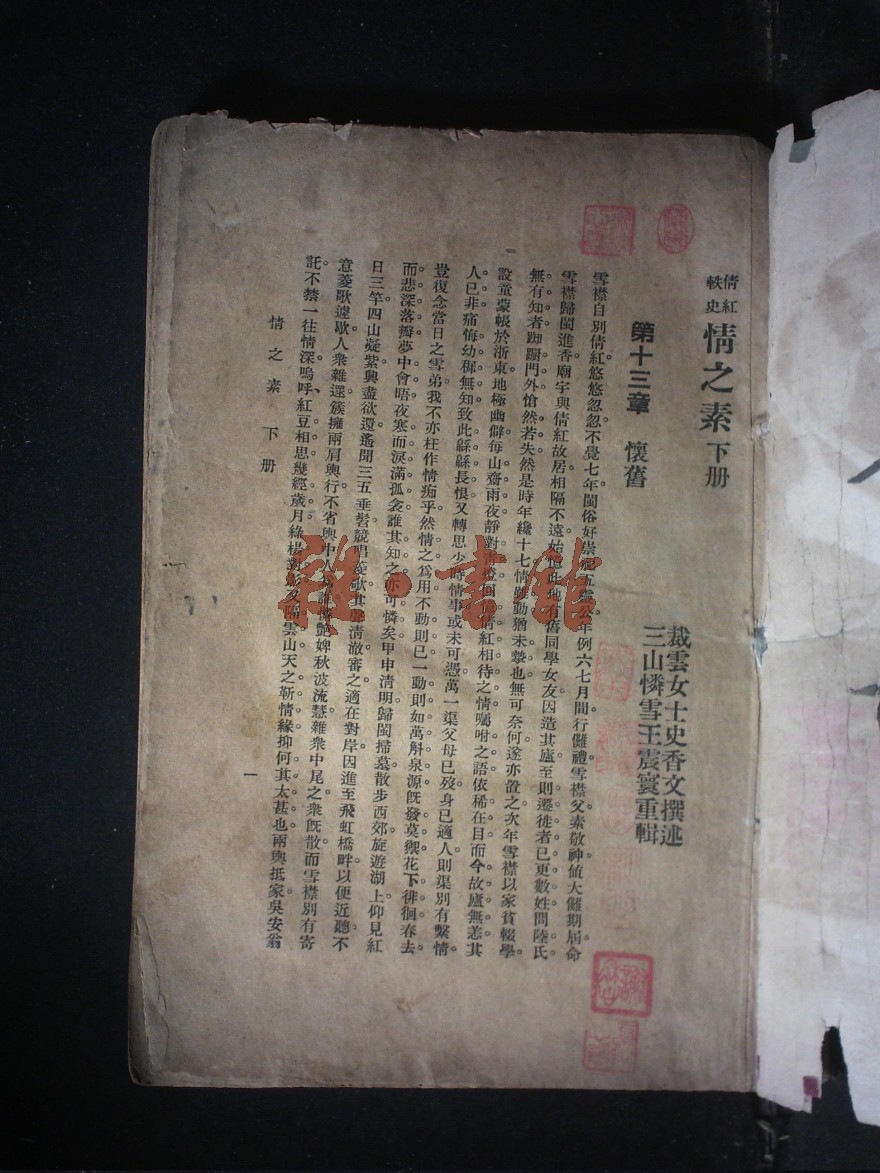 倩紅軼史
情之素 下册
裁雲女士史香文撰述
三山憐雪王震寰重輯
第十三章 懷舊
雪襟自別倩紅悠悠忽忽不覺七年閩俗好崇祀五靈公年例六七月間行儺禮雪襟父素敬神値大儺期屆命
雪襟歸閩進香廟宇與倩紅故居相隔不遠始憶此地有舊同學女友因造其廬至則遷徙者已更數姓問陸氏
無有知者踟躕門外愴然若失然是時年纔十七情雖動猶未摯也無可奈何遂亦置之次年雪襟以家貧輟學
設童蒙帳於浙東地極幽僻每山齋雨夜靜對靑燈回首倩紅相待之情囑咐之語依稀在目而今故廬無恙其
人已非痛悔幼穉無知致此緜緜長恨又轉思少時情事或未可憑萬一渠父母已歿身已適人則渠別有繫情
豈復念當日之雪弟我不亦枉作情痴乎然情之爲用不動則已一動則如萬斛泉源旣發莫禦花下徘徊春去
而悲深落瓣夢中會晤夜寒而淚滿孤衾誰其知之亦可憐矣甲申淸明歸閩掃墓散步西郊旋遊湖上仰見紅
日三竿四山凝紫興盡欲還遙聞三五垂髫競唱菱歌其聲淸澈審之適在對岸因進至飛虹橋畔以便近聽不
意菱歌遽歇人衆雜遝簇擁兩肩輿行不省輿中人爲誰艷婢秋波流慧雜衆中尾之衆旣散而雪襟別有寄
託不禁一往情深嗚呼紅豆相思幾經歲月綠楊影又隔雲山天之靳情緣抑何其太甚也兩輿抵家吳安翁
情之素 下册
一
雜·書館